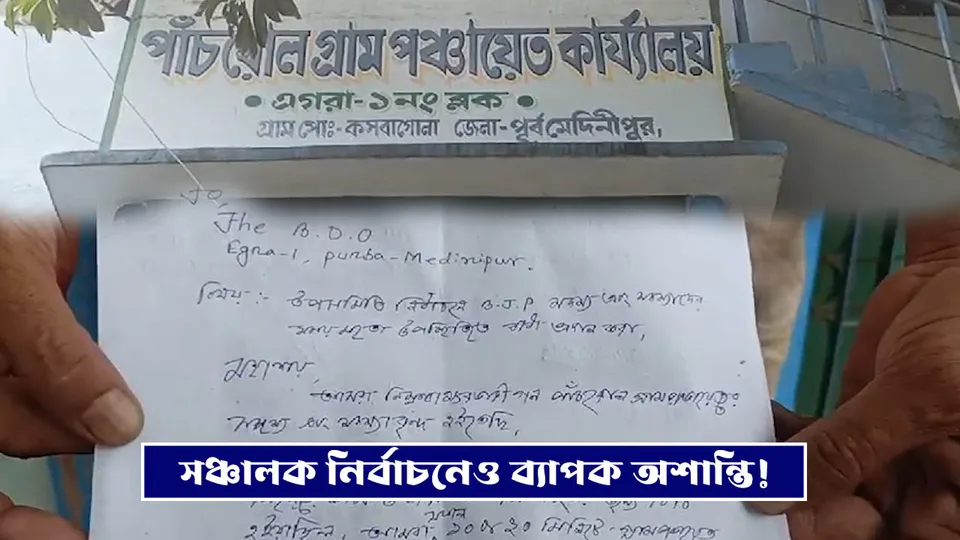 পাঁচরোল গ্রাম পঞ্চায়েত কার্য্যালয়
• এগরা-১নং ব্লক •
গ্রাম পোঃ-কসবাগোলা জেলা-পূর্বমেদিনীপুর,
To,
The B.D.O
Egra-1, purba-Medinipur.
বিষয়:- উপসমিতি নির্বাচনে B.J.P সদস্য এবং সদস্যাদের
উপস্থিতিতে বাধা প্রদান করা,
মহাশয়,
আমরা নিম্ন গন পাঁচরোল গ্রামপঞ্চায়েতের
সদস্য এবং সদস্যা বৃন্দ হইতেছি,
সঞ্চালক নির্বাচনেও ব্যাপক অশান্তি!
হইয়াছিল, আমরা সকাল ১০টা ২০ মিনিটে গ্রামপঞ্চায়েত